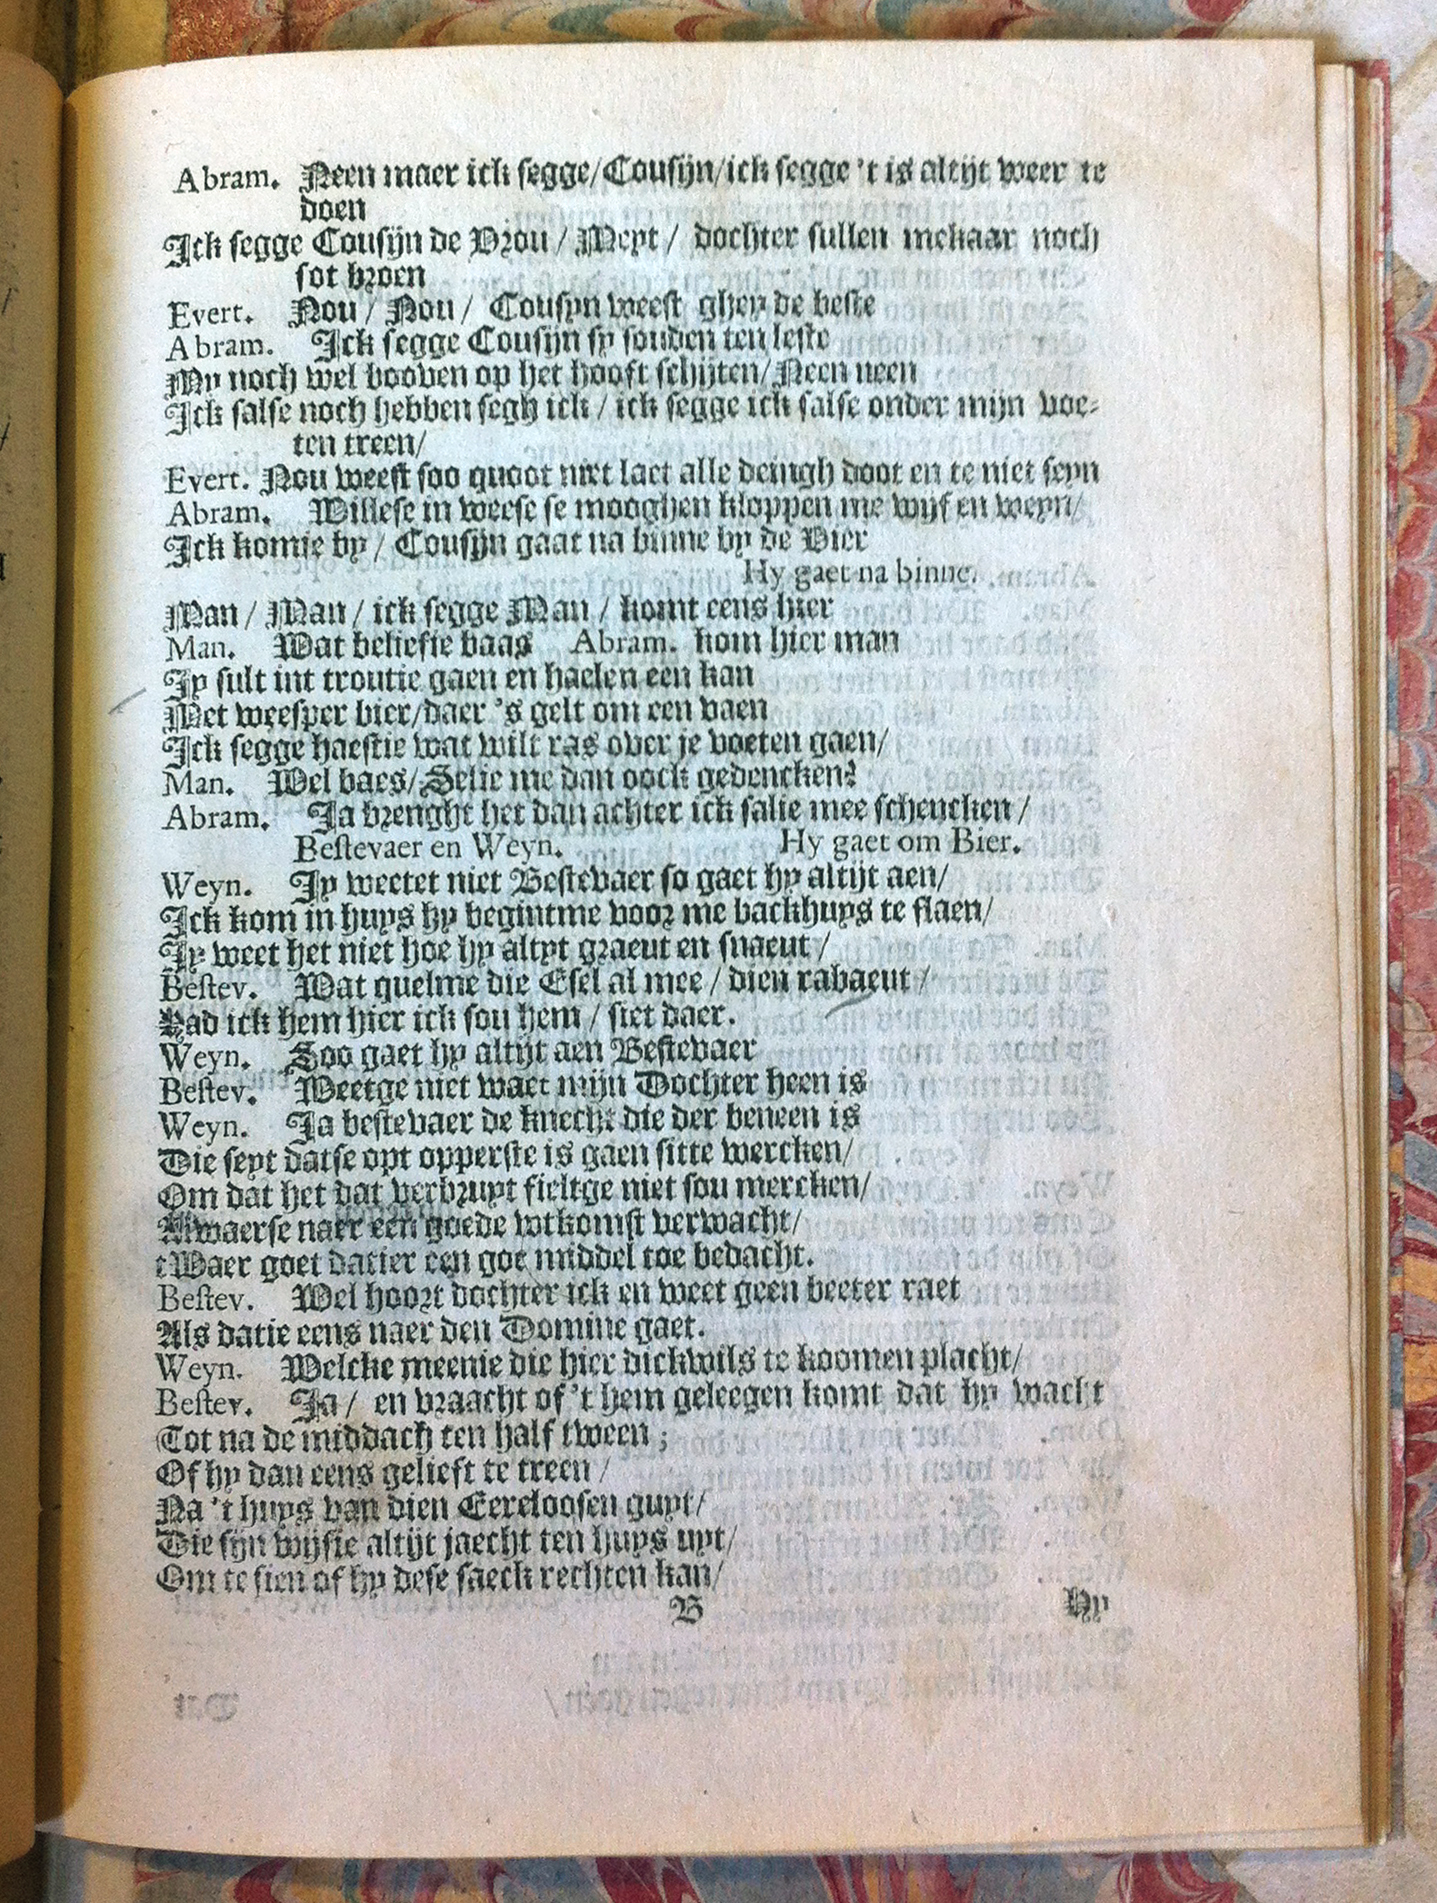 Abram. Neen maer ick segge/Cousijn/ick segge 't is altijt weer te
doen
Ick segge Cousijn de Vrou / Meyt / dochter sullen mekaar noch
sot broen
Evert. Nou / Nou / Cousyn weest ghey de beste
Abram. Ick segge Cousijn sy souden ten leste
My noch wel booven op het hooft schijten/Neen neen
Ick salse noch hebben segh ick / ick segge ick salse onder mijn voe-
ten treen/
Evert. Nou weest soo quoot niet laet alle deingh doot en te niet seyn
Abram. Willese in weese se mooghen kloppen me wijf en weyn/
Ick komje by / Cousijn gaat na binne by de Vier
Hy gaet na binne.
Man / Man / ick segge Man / komt eens hier
Man. Wat beliefje baas Abram. kom hier man
Jy sult int troutje gaen en haelen een kan
Met weesper bier/daer 's gelt om een vaen
Ick segge haestje wat wilt ras over je voeten gaen/
Man. Wel baes/Selje me dan oock gedencken?
Abram. Ja brenght het dan achter ick salje mee schencken /
Bestevaer en Weyn. Hy gaet om Bier.
Weyn. Jy weetet niet Bestevaer so gaet hy altijt aen/
Ick kom in huys hy begintme voor me backhuys te slaen/
Jy weet het niet hoe hy altyt graeut en snaeut /
Bestev. Wat quelme die Esel al mee / dien rabaeut /
Had ick hem hier ick sou hem / siet daer.
Weyn. Soo gaet hy altijt aen Bestevaer
Bestev. Weetge niet waet mijn Dochter heen is
Weyn. Ja bestevaer de knecht die der beneen is
Die seyt datse opt opperste is gaen sitte wercken/
Om dat het dat verbruyt fieltge niet sou mercken/
Alwaerse naer een goede wtkomst verwacht/
tWaer goet datier een goe middel toe bedacht.
Bestev. Wel hoort dochter ick en weet geen beeter raet
Als datje eens naer den Domine gaet.
Weyn. Welcke meenje die hier dickwils te koomen placht/
Bestev. Ja / en vraacht of 't hem geleegen komt dat hy wacht
Tot na de middach ten half tween ;
Of hy dan eens gelieft te treen /
Na 't huys van dien Eereloosen guyt/
Die sijn wijfje altijt jaecht ten huys uyt/
Om te sien of hy dese saeck rechten kan/
B Hy